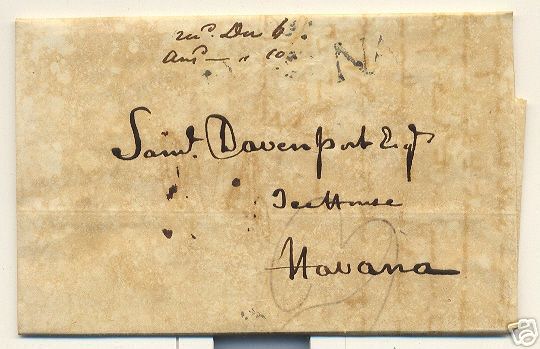 recd. Dec 6.
Ansd — " 10.
N
Saml. Davenport Esqr
Ice House
Havana
ebY